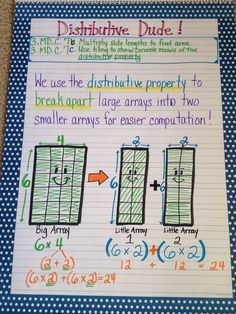 Distributive Dude!
3.MD.C.7b Multiply side lengths to find area.
3.MD.C.7c Use tiling to show concrete models of the
distributive property
We use the distributive property to
break apart large arrays into two
smaller arrays for easier computation!
4 2 2
6 6 + 6
Big Array Little Array Little Array
1 2
6 x 4 (6 x 2) + (6 x 2)
(2 + 2) 12 + 12 = 24
(6 x 2) + (6 x 2) = 24